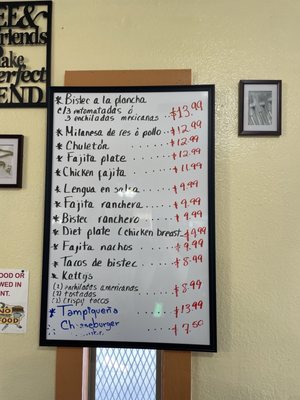 EE&
riends
ake
erfect
END
* Bistec a la plancha
c/3 entomatadas ó
3 enchiladas mexicanas $13.99
* Milanesa de res ó pollo.. $12.99
* Chuletón ..... $12.99
* Fajita plate ..... $12.99
* Chicken fajita ..... $11.99
* Lengua en salsa .... $9.99
* Fajita ranchera .... $9.99
* Bistec ranchero .... $9.99
* Diet plate (Chicken breast) $9.99
* Fajita nachos ..... $9.99
* Tacos de bistec .... $8.99
* Kattys
(2) enchiladas americanas
(2) tostadas .... $8.99
(2) crispy tacos
* Tampiqueña .... $13.99
Cheeseburger .... $7.50
OD OR
WED IN
NT.
NO
FOOD